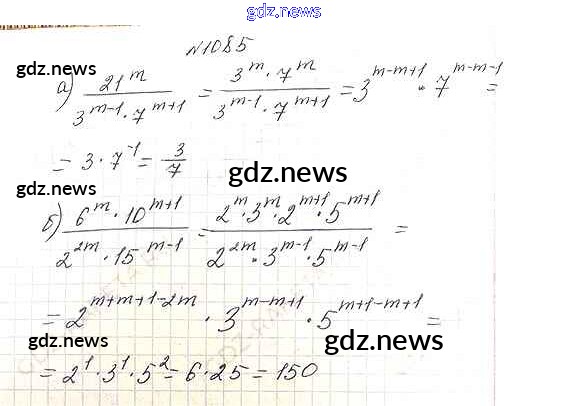 gdz.news
№1085
gdz.news gdz.news
а) 21^m / (3^(m-1) · 7^(m+1)) = (3^m · 7^m) / (3^(m-1) · 7^(m+1)) = 3^(m-m+1) · 7^(m-m-1) =
= 3 · 7^(-1) = 3/7
gdz.news
gdz.news
б) (6^m · 10^(m+1)) / (2^(2m) · 15^(m-1)) = (2^m · 3^m · 2^(m+1) · 5^(m+1)) / (2^(2m) · 3^(m-1) · 5^(m-1)) =
= 2^(m+m+1-2m) · 3^(m-m+1) · 5^(m+1-m+1) =
gdz.news gdz.news
= 2^1 · 3^1 · 5^2 = 6 · 25 = 150
gdz.news gdz.news